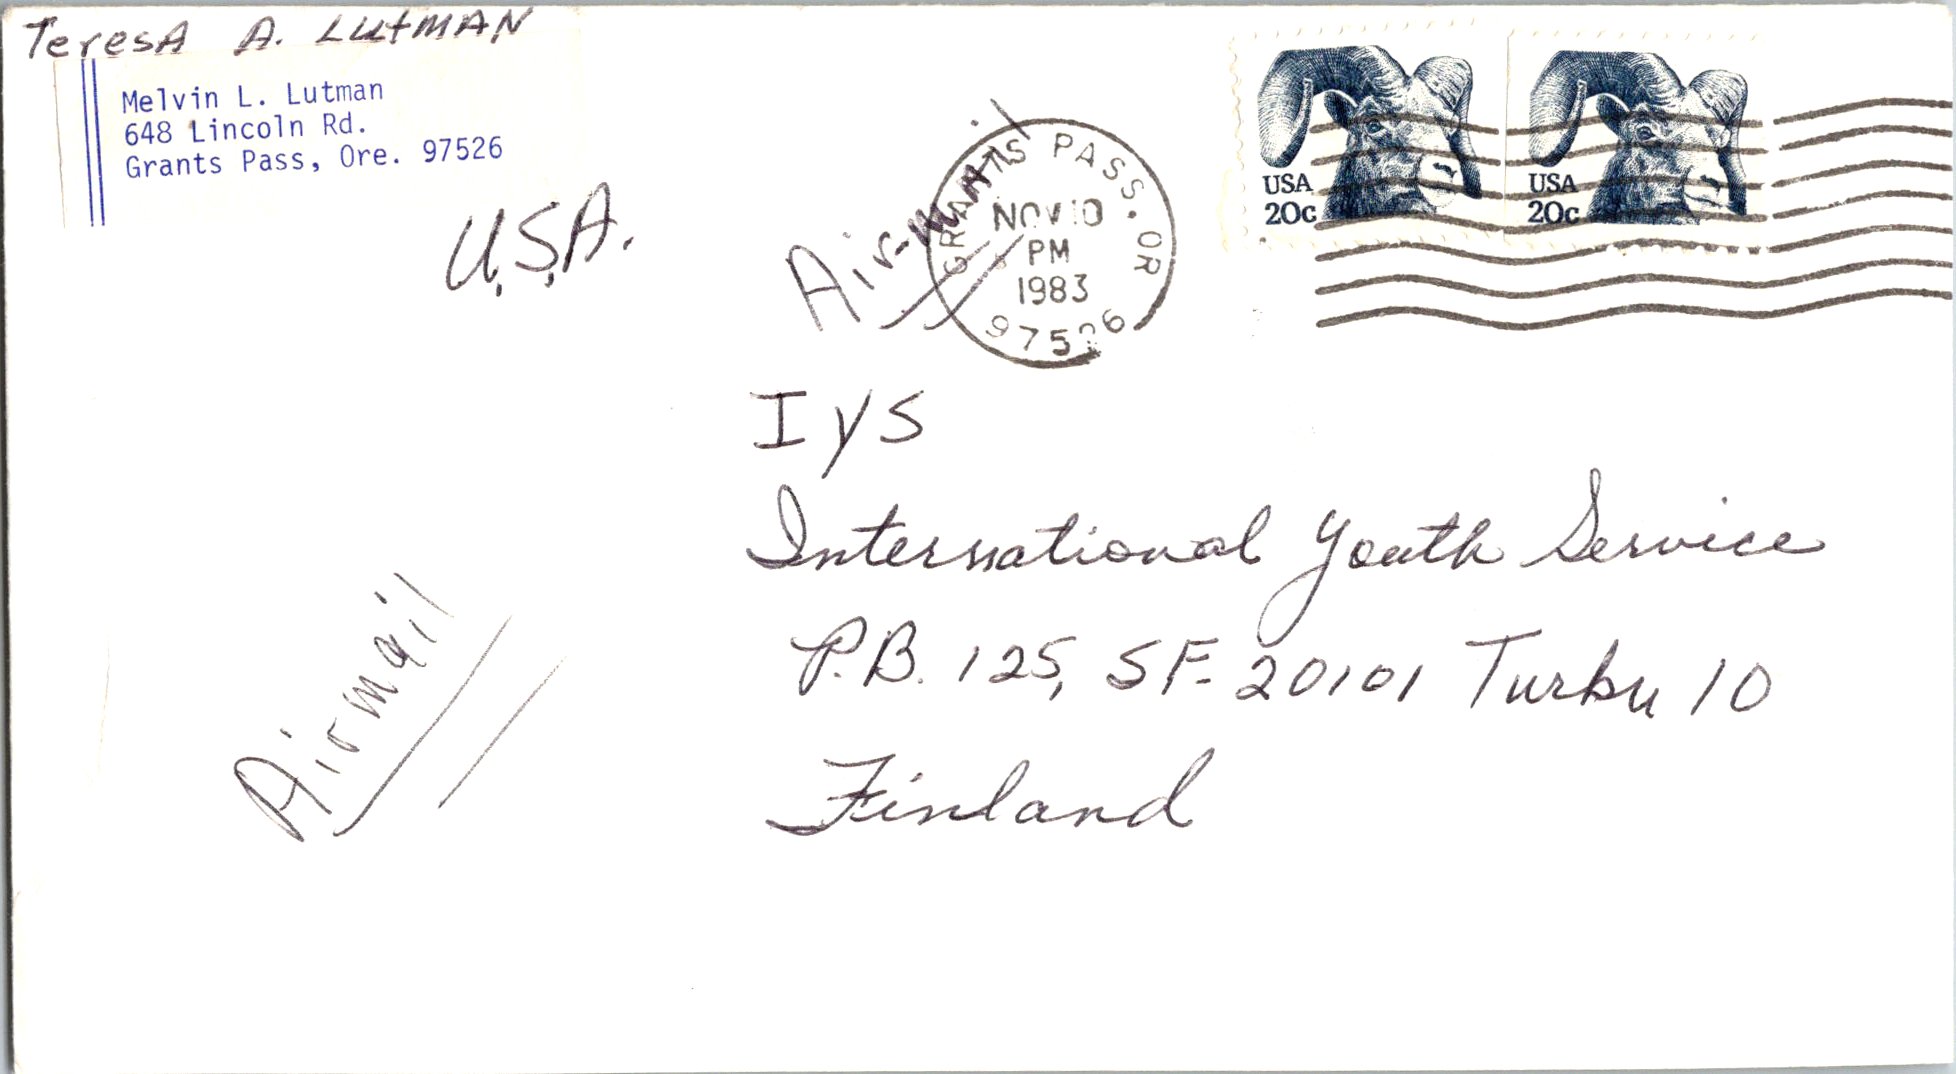 Teresa A. Lutman
Melvin L. Lutman
648 Lincoln Rd.
Grants Pass, Ore. 97526
U.S.A.
Air-mail
GRANTS PASS. OR
NOV 10
PM
1983
97526
USA
20c
USA
20c
Iys
International Youth Service
P.B. 125, SF- 20101 Turku 10
Finland
Airmail